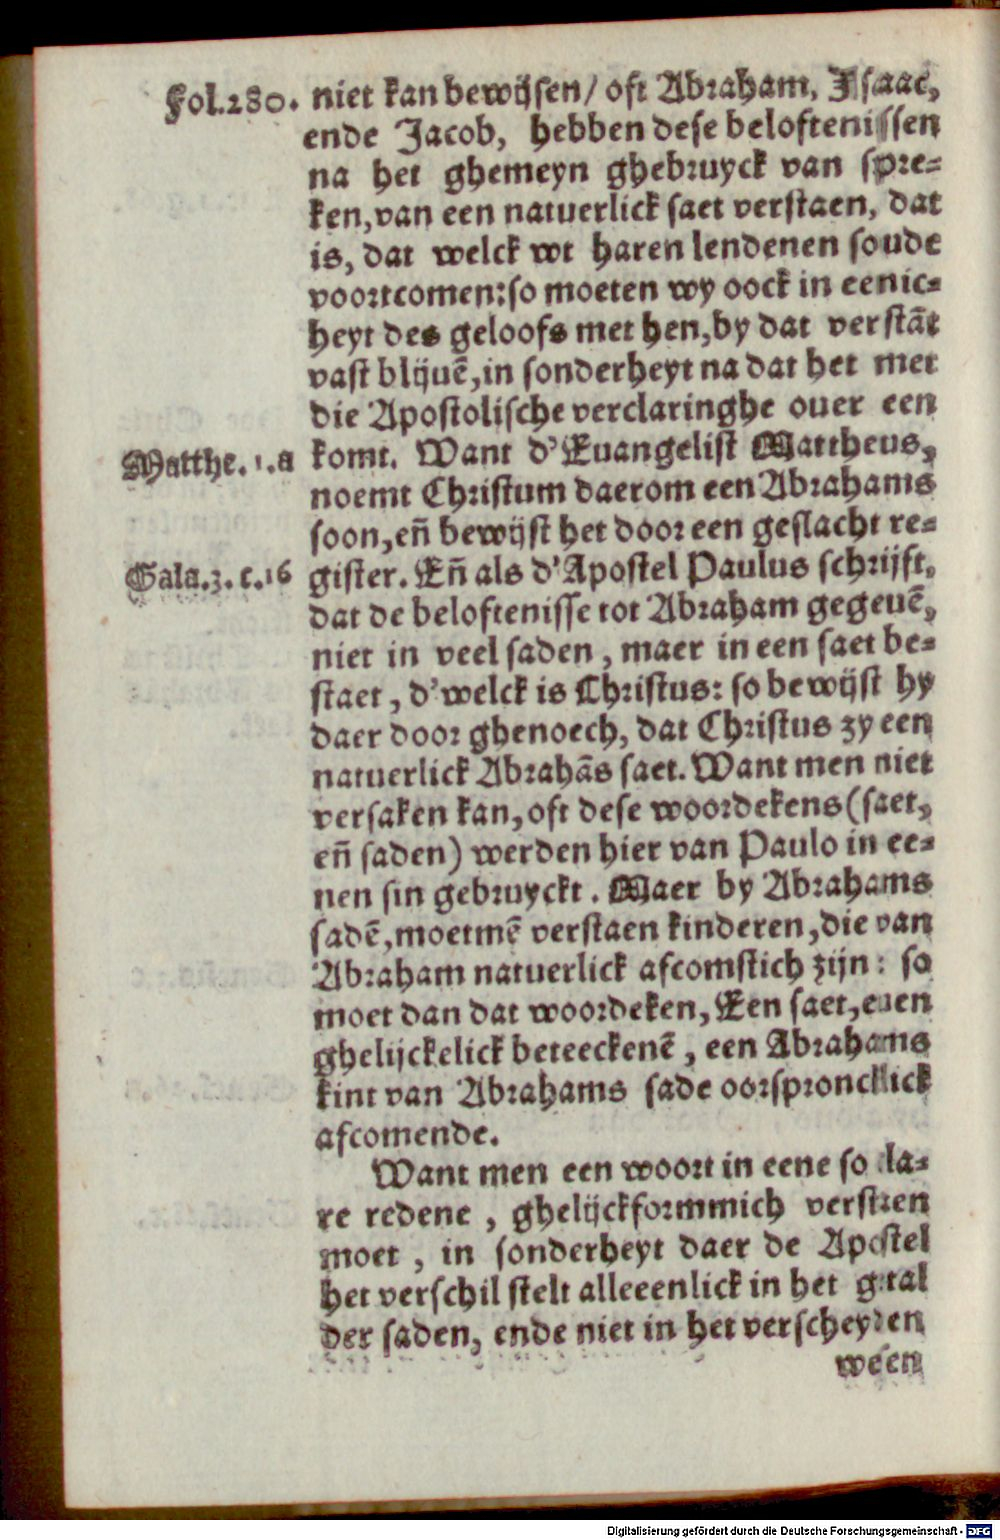 Fol.280. niet kan bewijsen/ oft Abraham, Isaac,
ende Jacob, hebben dese beloftenissen
na het ghemeyn ghebruyck van spre⸗
ken, van een natuerlick saet verstaen, dat
is, dat welck wt haren lendenen soude
voortcomen: so moeten wy oock in eenic⸗
heyt des geloofs met hen, by dat verstāt
vast blijuē, in sonderheyt na dat het met
die Apostolische verclaringhe ouer een
Matthe. 1. a komt. Want d'Euangelist Mattheus,
noemt Christum daerom een Abrahams
soon, eñ bewijst het door een geslacht re⸗
Gala. 3. c. 16 gister. Eñ als d'Apostel Paulus schrijft,
dat de beloftenisse tot Abraham gegeuē,
niet in veel saden, maer in een saet be⸗
staet, d'welck is Christus: so bewijst hy
daer door ghenoech, dat Christus zy een
natuerlick Abrahās saet. Want men niet
versaken kan, oft dese woordekens (saet,
eñ saden) werden hier van Paulo in ee⸗
nen sin gebruyckt. Maer by Abrahams
sadē, moetmē verstaen kinderen, die van
Abraham natuerlick afcomstich zijn: so
moet dan dat woordeken, Een saet, euen
ghelijckelick beteeckenē, een Abrahams
kint van Abrahams sade oorspronckelick
afcomende.
Want men een woort in eene so cla⸗
re redene, ghelijckformmich verstaen
moet, in sonderheyt daer de Apostel
het verschil stelt alleeenlick in het getal
der saden, ende niet in het verscheyden
wesen
Digitalisierung gefördert durch die Deutsche Forschungsgemeinschaft - DFG